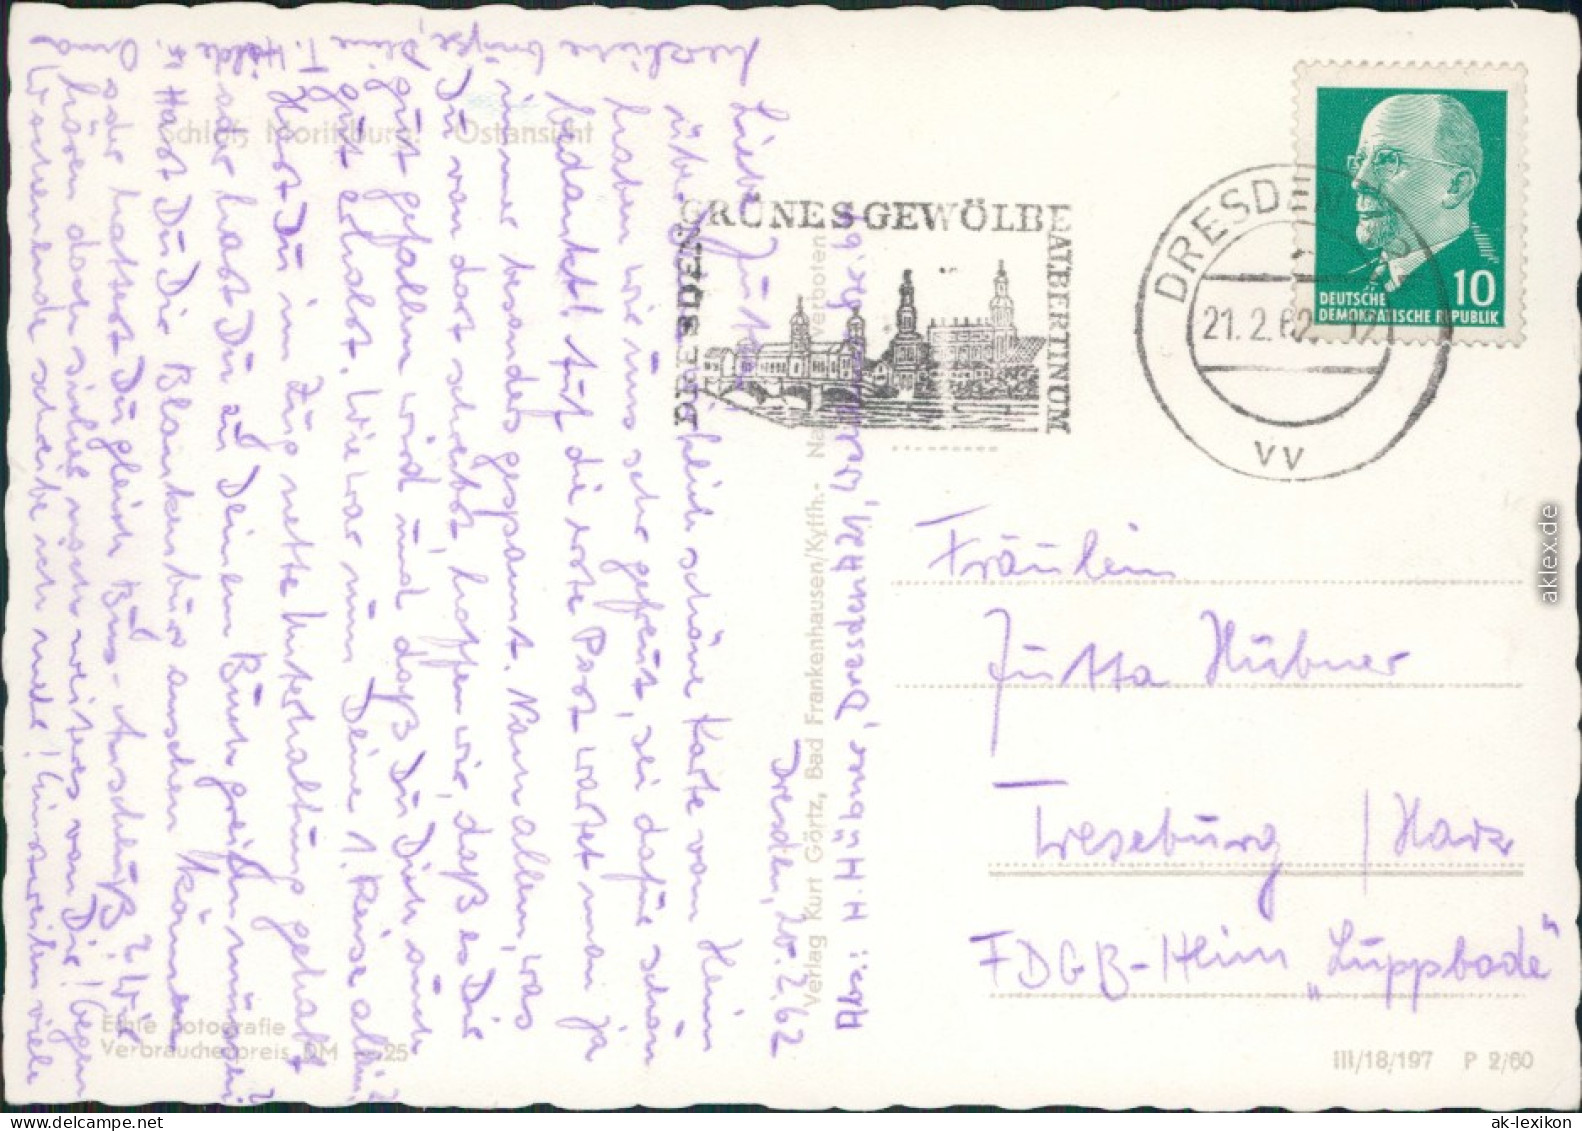 Schloß Moritzburg. Ostansicht
GRÜNES GEWÖLBE
DRESDEN
ALBERTINUM
DRESDEN
21. 2. 62
VV
10
DEUTSCHE
DEMOKRATISCHE REPUBLIK
Dresden, 20.2.62
Liebe Jutta!
schöne Karte vom Heim
haben wir uns sehr gefreut, sei dafür schön
bedankt! Auf die erste Post wartet man ja
immer besonders gespannt. Vor allem, was
Du von dort schreibst, hoffen wir, daß es Dir
gut gefallen wird und daß Du Dich auch
gut erholst. Wie war nun Deine 1. Reise allein?
Hast Du im Zug nette Unterhaltung gehabt
oder hast Du zu Deinem Buch greifen müssen?
Hast Du Dir Blankenburg ansehen können
oder hattest Du gleich Bus-Anschluß? Wir
hören doch sicher noch weiteres von Dir! Gegen
Wochenende schreibe ich mehr! Einstweilen viele
herzliche Grüße, Deine T. Hilde
u.
Abs.: H. Hübner, Dresden A21,
Verlag Kurt Görtz, Bad Frankenhausen/Kyffh.- Nachdr. verboten
Fräulein
Jutta Hübner
Treseburg / Harz
FDGB-Heim „Luppbode“
Echte Fotografie
Verbraucherpreis DM -.25
III/18/197 P 2/60
aklex.de
ak-lexikon